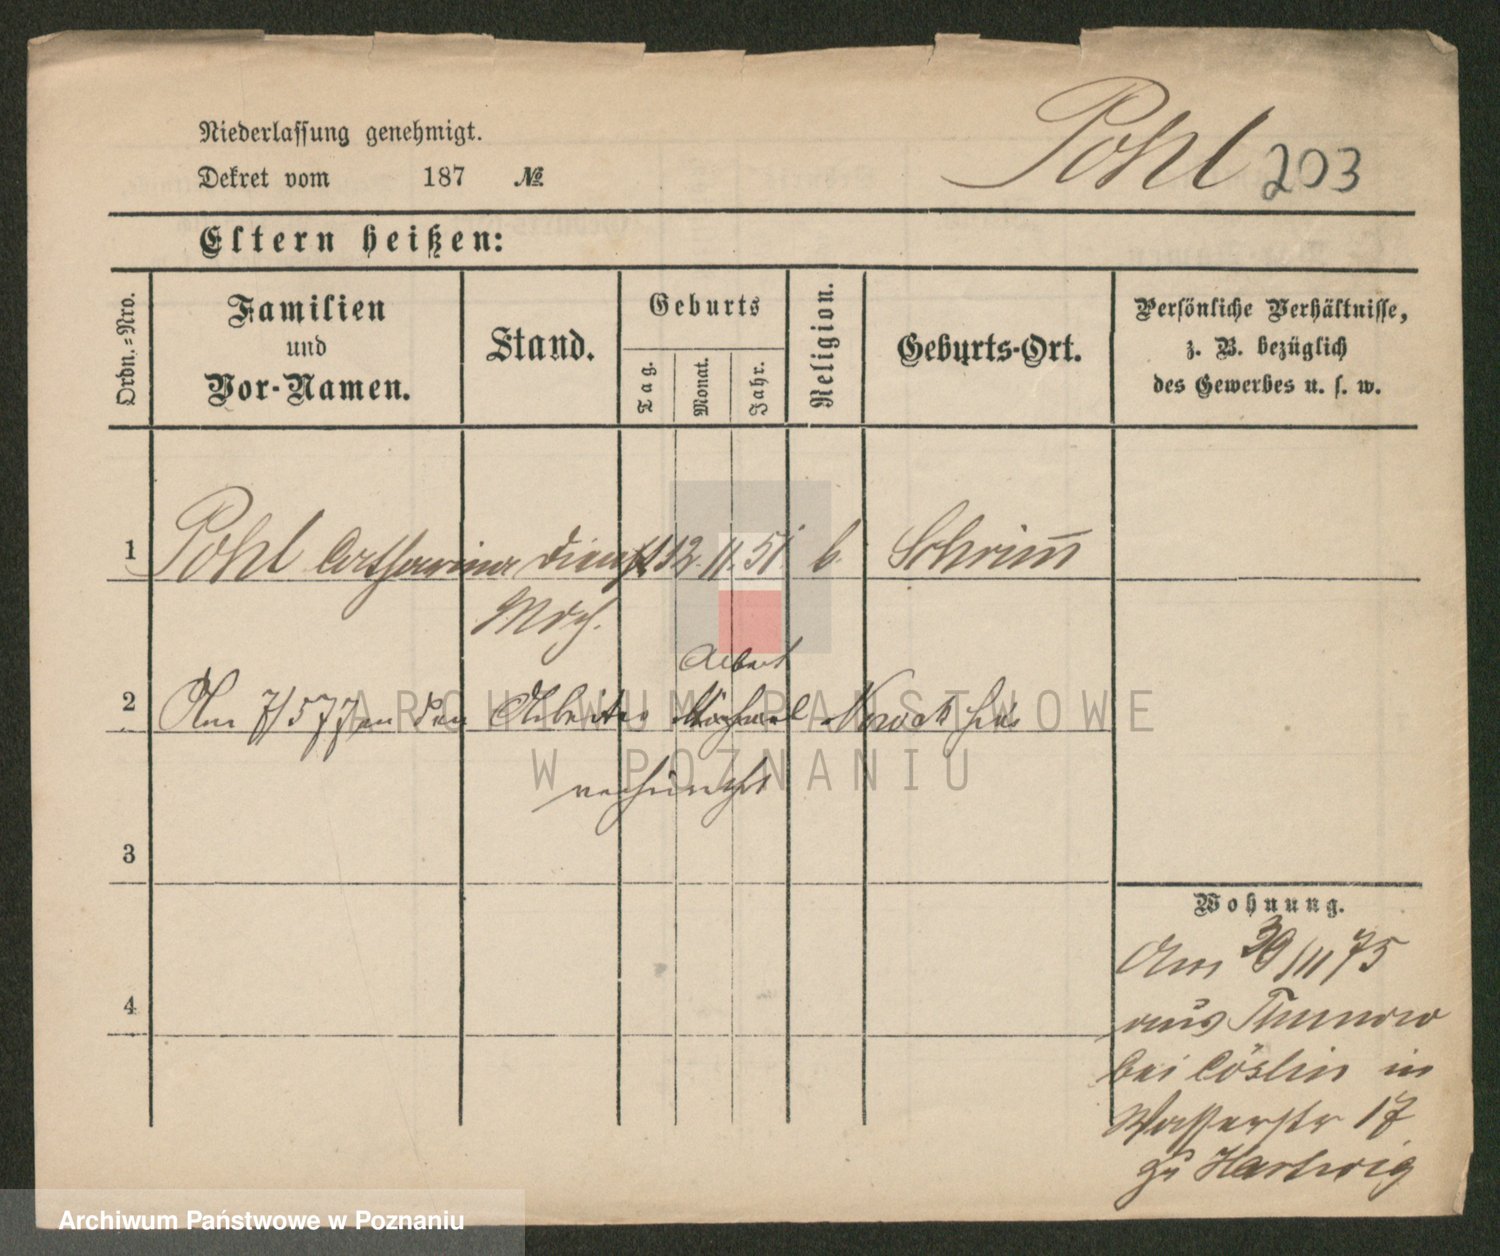 Pohl 203
Niederlassung genehmigt.
Dekret vom 187 №
Eltern heißen:
Ordn.-Nro.
Familien
und
Vor-Namen.
Stand.
Geburts
Tag.
Monat.
Jahr.
Religion.
Geburts-Ort.
Persönliche Verhältnisse,
z. B. bezüglich
des Gewerbes u. s. w.
1 Pohl Catharina Dienst 12. 11. 51. Schrim
Mdch.
Albert
2 Am 7/5 77 an den Arbeiter Nowak hier
3
4
Wohnung.
Am 30/11 75
aus Thunow
bei Cöslin in
Wasserstr 17
zu Hartwig
ARCHIWUM PAŃSTWOWE
W POZNANIU
Archiwum Państwowe w Poznaniu